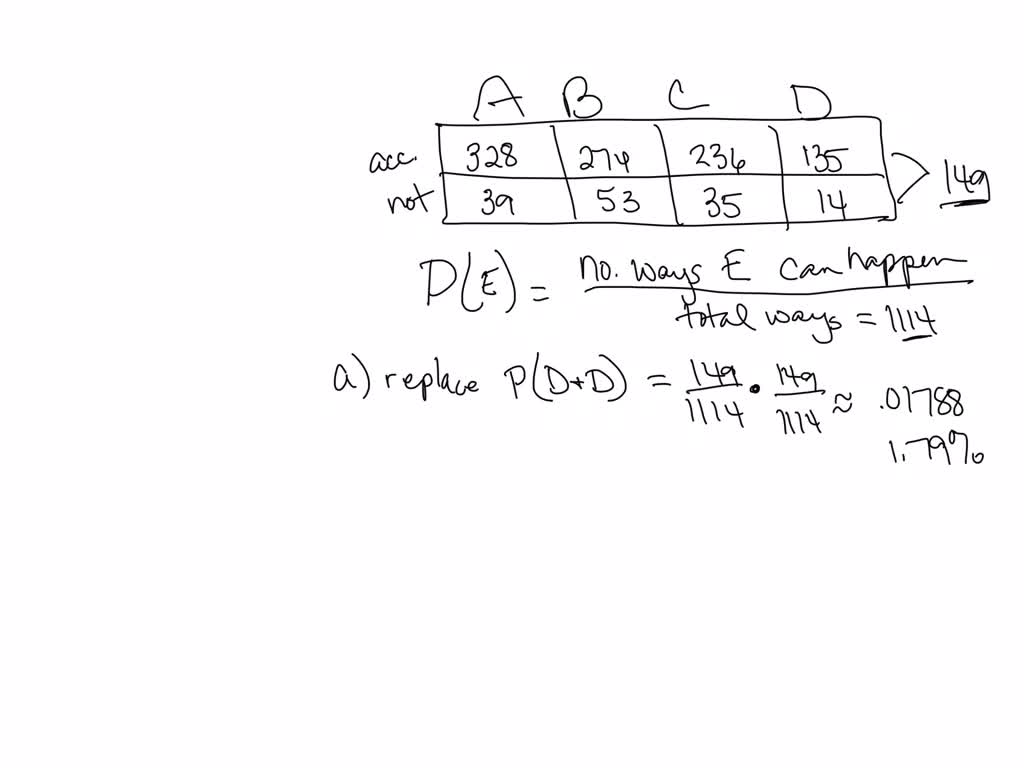 A B C D
acc. 328 274 236 135
not 39 53 35 14 149
P(E) = no. ways E can happen
total ways = 1114
a) replace P(D+D) = 149/1114 • 149/1114 ≈ .01788
1.79%